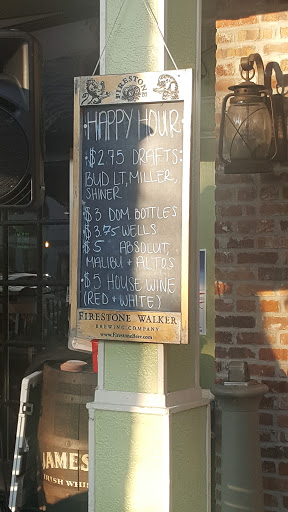 FIRESTONE
HAPPY HOUR
• $2.75 DRAFTS:
BUD LT, MILLER,
SHINER
• $3 DOM BOTTLES
• $3.75 WELLS
• $5 ABSOLUT,
MALIBU + ALTOS
• $5 HOUSE WINE
(RED + WHITE)
FIRESTONE WALKER
BREWING COMPANY
www.FirestoneBeer.com
JAMES
IRISH WHIS